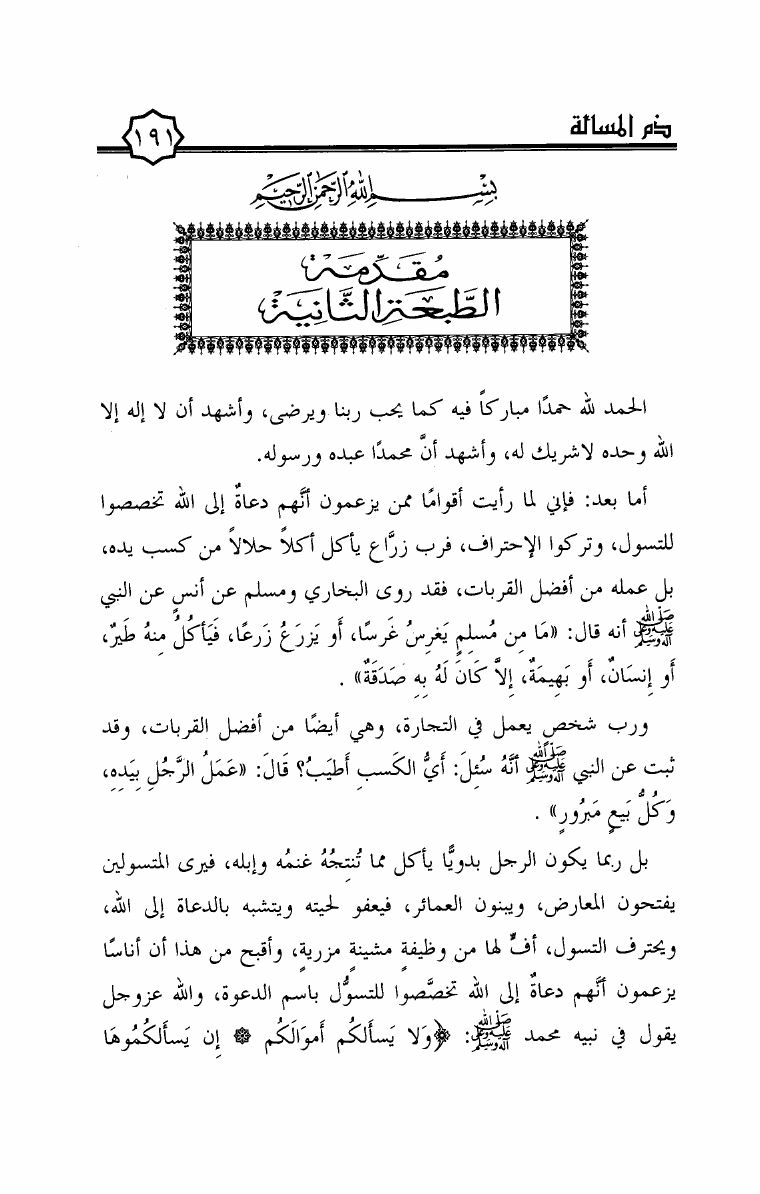 ذم المسألة
١٩١
بسم الله الرحمن الرحيم
مُقَدِّمَة
الطَّبْعَةِ الثَّانِيَةِ
الحمد لله حمدًا مباركاً فيه كما يحب ربنا ويرضى، وأشهد أن لا إله إلا
الله وحده لاشريك له، وأشهد أنَّ محمدًا عبده ورسوله.
أما بعد: فإني لما رأيت أقوامًا ممن يزعمون أنَّهم دعاةٌ إلى الله تخصصوا
للتسول، وتركوا الإحتراف، فرب زرَّاع يأكل أكلاً حلالاً من كسب يده،
بل عمله من أفضل القربات، فقد روى البخاري ومسلم عن أنسٍ عن النبي
ﷺ أنه قال: «مَا مِن مُسلِمٍ يَغرِسُ غَرسًا، أَو يَزرَعُ زَرعًا، فَيَأكُلُ مِنهُ طَيرٌ،
أَو إِنسَانٌ، أَو بَهِيمَةٌ، إِلاَّ كَانَ لَهُ بِهِ صَدَقَةٌ» .
ورب شخص يعمل في التجارة، وهي أيضًا من أفضل القربات، وقد
ثبت عن النبي ﷺ أَنَّهُ سُئِلَ: أَيُّ الكَسبِ أَطيَبُ؟ قَالَ: «عَمَلُ الرَّجُلِ بِيَدِهِ،
وَكُلُّ بَيعٍ مَبرُورٍ» .
بل ربما يكون الرجل بدويًّا يأكل مما تُنتِجُهُ غنمُه وإبله، فيرى المتسولين
يفتحون المعارض، ويبنون العمائر، فيعفو لحيته ويتشبه بالدعاة إلى الله،
ويحترف التسول، أفٍّ لها من وظيفةٍ مشينةٍ مزريةٍ، وأقبح من هذا أن أناسًا
يزعمون أنَّهم دعاةٌ إلى الله تخصَّصوا للتسوُّل باسم الدعوة، والله عزوجل
يقول في نبيه محمد ﷺ: ﴿وَلا يَسأَلكُم أَموَالَكُم ۞ إِن يَسأَلكُمُوهَا